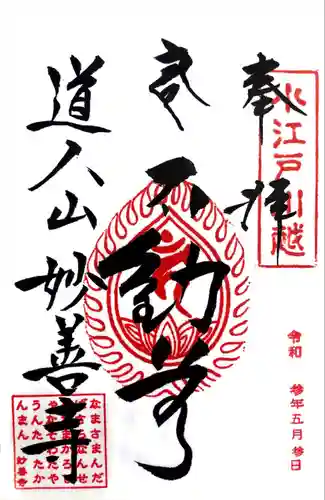 奉拝
小江戸川越
不動尊
道人山妙善寺
令和 参年五月参日
なまさまんだ
ばさらなんせ
んだまかろし
やなそわたや
うんたらたか
んまん 妙善寺